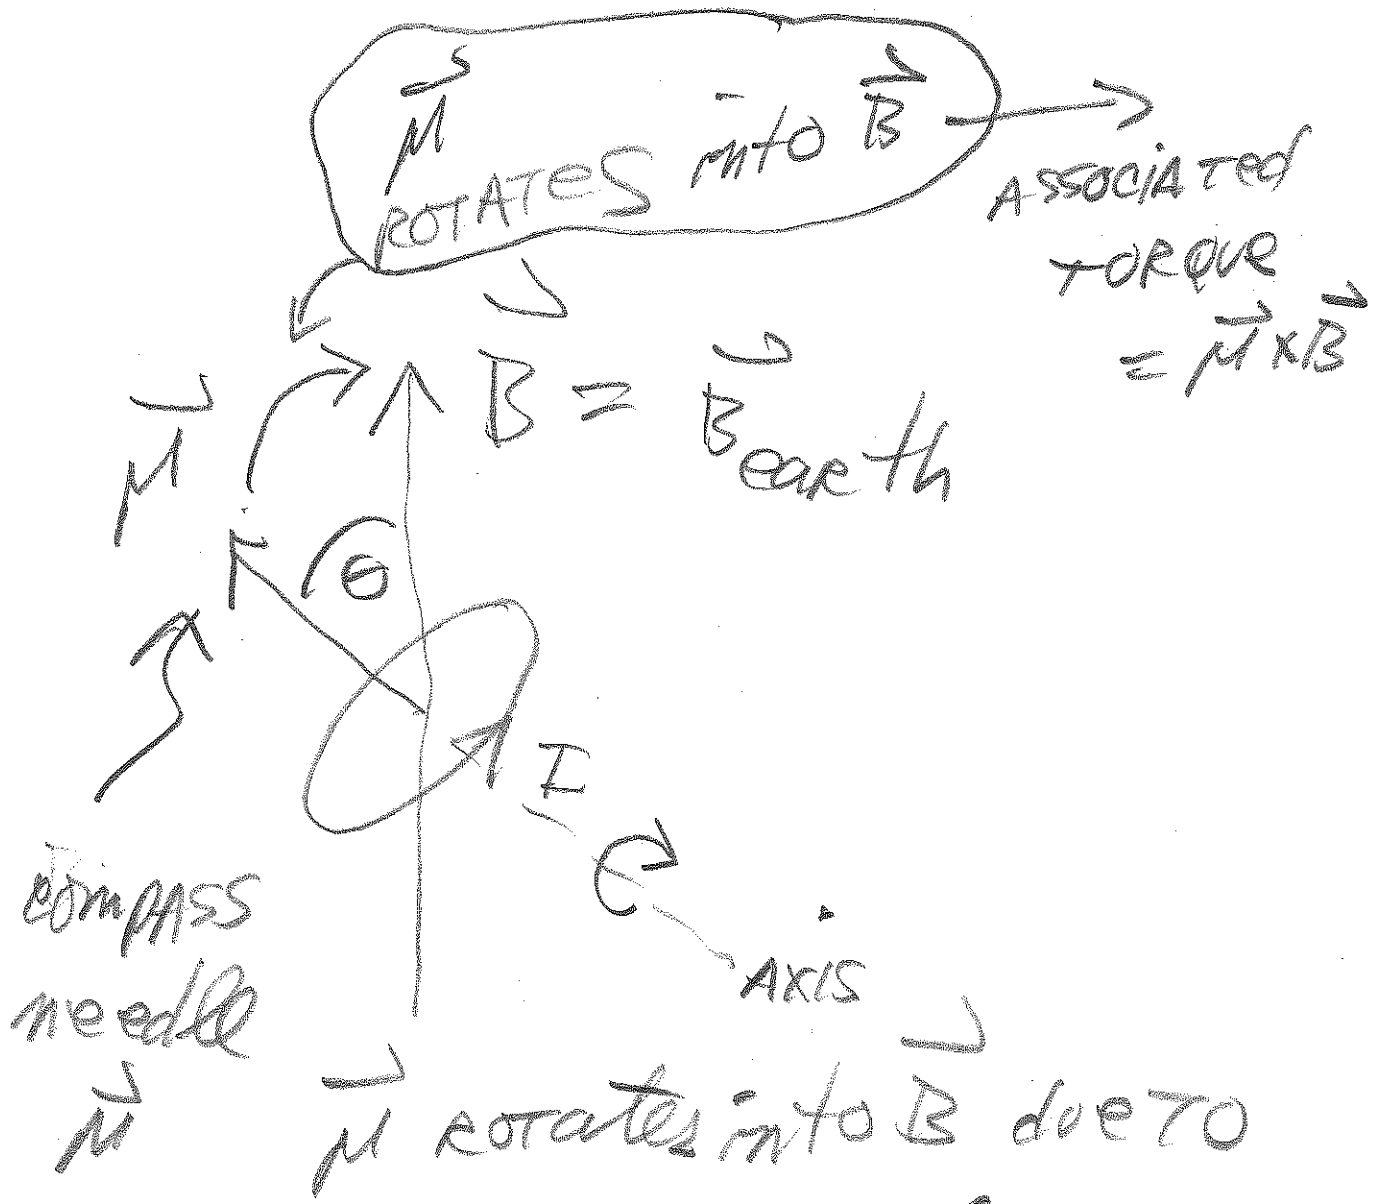 μ⃗ ROTATES into B⃗
ASSOCIATED
TORQUE
= μ⃗ × B⃗
μ⃗
B⃗ = B⃗earth
θ
I
compass
needle
μ⃗
AXIS
μ⃗ ROTates into B⃗ due TO